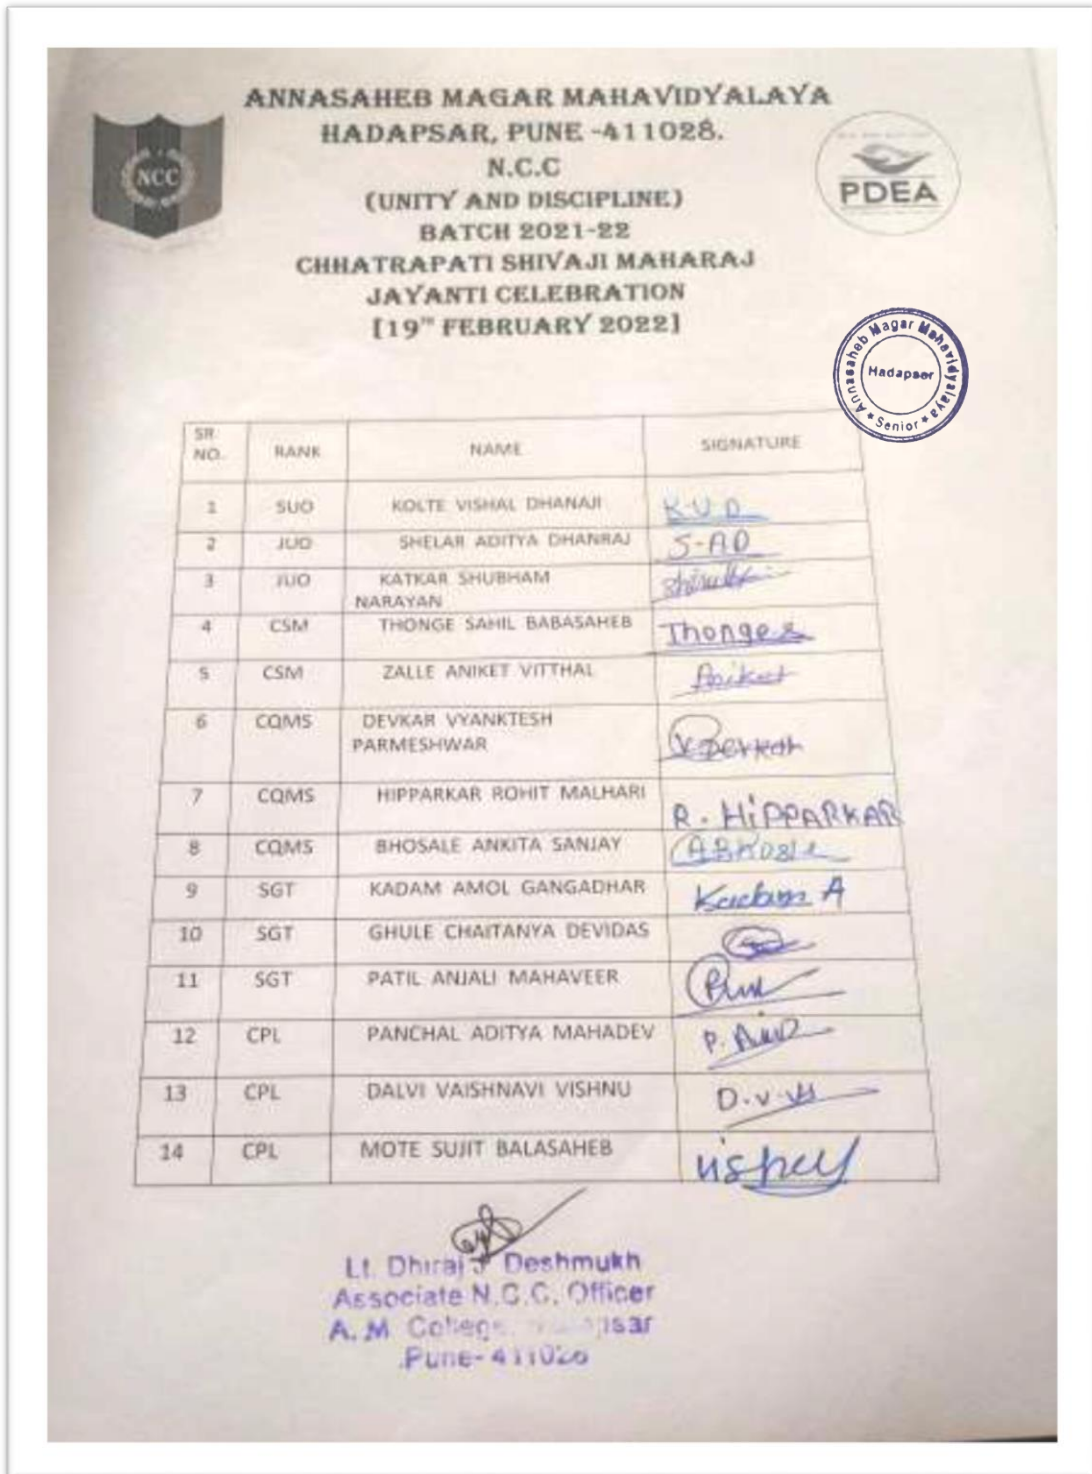 ANNASAHEB MAGAR MAHAVIDYALAYA
HADAPSAR, PUNE -411028.
N.C.C
(UNITY AND DISCIPLINE)
BATCH 2021-22
CHHATRAPATI SHIVAJI MAHARAJ
JAYANTI CELEBRATION
[19TH FEBRUARY 2022]
NCC
PDEA
Annasaheb Magar Mahavidyalaya
Hadapsar
* Senior *
SR. NO. RANK NAME SIGNATURE
1 SUO KOLTE VISHAL DHANAJI K.V.D
2 JUO SHELAR ADITYA DHANRAJ S-AD
3 JUO KATKAR SHUBHAM
NARAYAN
4 CSM THONGE SAHIL BABASAHEB Thonge
5 CSM ZALLE ANIKET VITTHAL Aniket
6 CQMS DEVKAR VYANKTESH
PARMESHWAR V Devkar
7 CQMS HIPPARKAR ROHIT MALHARI R. HiPPARKAR
8 CQMS BHOSALE ANKITA SANJAY
9 SGT KADAM AMOL GANGADHAR Kadam A
10 SGT GHULE CHAITANYA DEVIDAS
11 SGT PATIL ANJALI MAHAVEER
12 CPL PANCHAL ADITYA MAHADEV
13 CPL DALVI VAISHNAVI VISHNU
14 CPL MOTE SUJIT BALASAHEB
Lt. Dhiraj J Deshmukh
Associate N.C.C. Officer
A. M. College,
Pune-411028